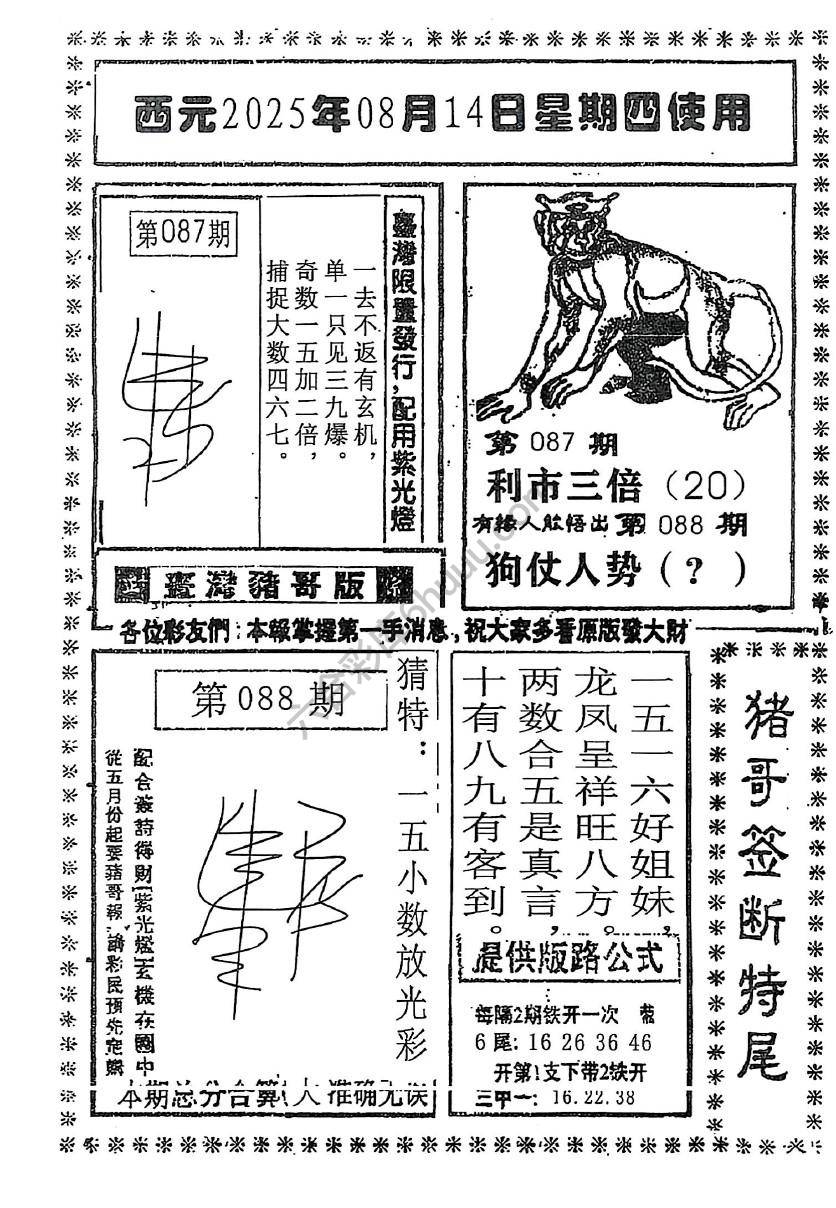 西元2025年08月14日星期四使用
第087期
臺灣限量發行，配用紫光燈
一去不返有玄机，
单一只见三九爆。
奇数一五加二倍，
捕捉大数四六七。
臺灣豬哥版
第 087 期
利市三倍（20）
有緣人能悟出 第 088 期
狗仗人势（？）
各位彩友們：本報掌握第一手消息，祝大家多看原版發大財
第088期
猜特：一五小数放光彩
配合簽詩得財【紫光燈】玄機在圖中
從五月份起要豬哥報，請彩民預先定購
本期总分合算
准确无误
一五一六好姐妹，
龙凤呈祥旺八方。
两数合五是真言，
十有八九有客到。
提供版路公式
每隔2期铁开一次
6尾: 16 26 36 46
开第1支下带2铁开
三甲一: 16.22.38
猪哥签断特尾
六合彩库6huuu.com